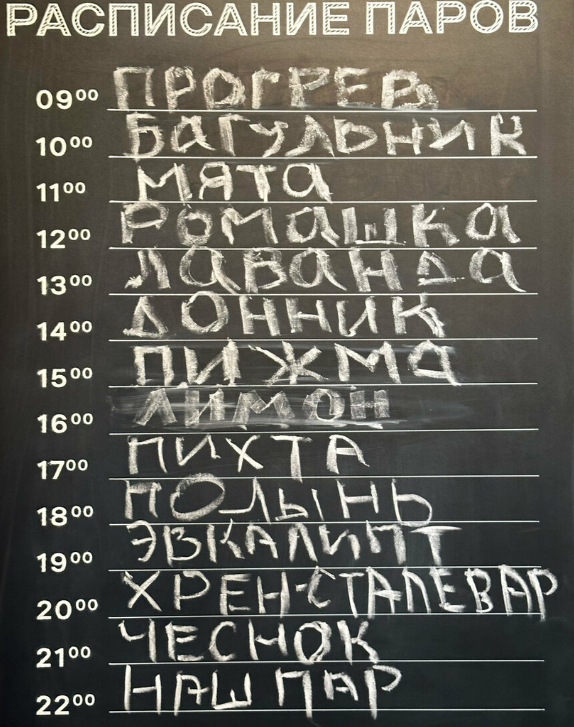 РАСПИСАНИЕ ПАРОВ
09⁰⁰ ПРОГРЕВ
10⁰⁰ БАГУЛЬНИК
11⁰⁰ МЯТА
12⁰⁰ РОМАШКА
13⁰⁰ ЛАВАНДА
14⁰⁰ ДОННИК
15⁰⁰ ПИЖМА
16⁰⁰ ЛИМОН
17⁰⁰ ПИХТА
18⁰⁰ ПОЛЫНЬ
19⁰⁰ ЭВКАЛИПТ
20⁰⁰ ХРЕН-СТАЛЕВАР
21⁰⁰ ЧЕСНОК
22⁰⁰ НАШ ПАР